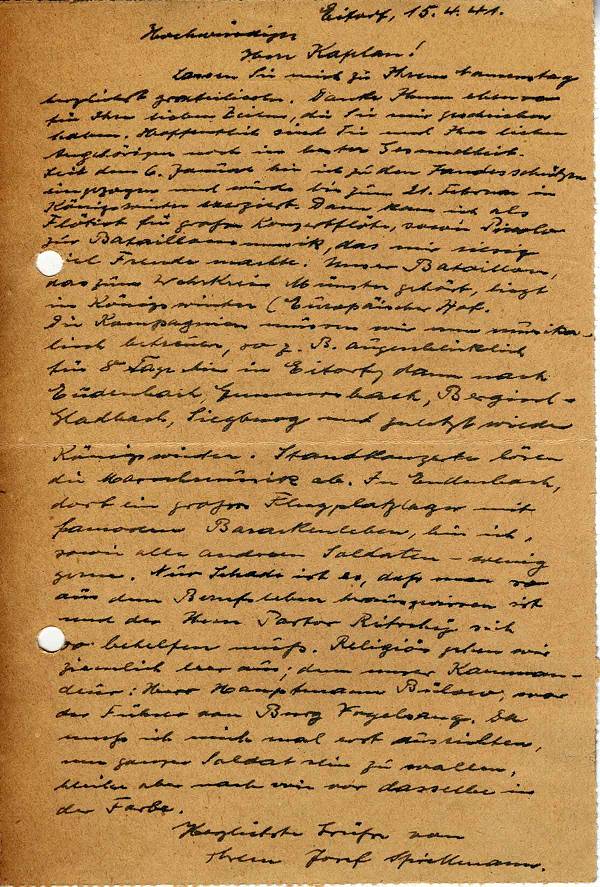 Eitorf, 15.4.41.
Hochwürdiger
Herr Kaplan!
Lassen Sie mich zu Ihrem Namenstag
herzlichst gratulieren. Danke Ihnen ebenso
für Ihre lieben Zeilen, die Sie mir geschrieben
haben. Hoffentlich sind Sie und Ihre lieben
Angehörigen noch in bester Gesundheit.
Seit dem 6. Januar bin ich zu den Landesschützen
eingezogen und wurde bis zum 21. Februar in
Königswinter exerziert. Dann kam ich als
Flötist für große Konzertflöte, sowie Piccolo
zur Bataillonsmusik, das mir riesig
viel Freude machte. Unser Bataillon,
das zum Wehrkreis Münster gehört, liegt
in Königswinter (Europäischer Hof.
Die Kompagnien müssen wir nun musika-
lisch betreuen, so z. B. augenblicklich
für 8 Tage hier in Eitorf, dann nach
Eudenbach, Gummersbach, Bergisch-
Gladbach, Siegburg und zuletzt wieder
Königswinter. Standkonzerte lösen
die Marschmusik ab. In Eudenbach,
dort ein großes Flugplatzlager mit
famosem Barackenleben, bin ich,
sowie alle anderen Soldaten - wenig
gerne. Nur Schade ist es, daß man so
aus dem Berufsleben herausgerissen ist
und der Herr Pastor Ritschig sich
so behelfen muß. Religiös gehen wir
ziemlich leer aus; denn unser Komman-
deur: Herr Hauptmann Bülow, war
der Führer von Burg Vogelsang. Da
muß ich mich mal erst ausrichten,
um ganzer Soldat sein zu wollen,
bleibe aber nach wie vor derselbe in
der Farbe.
Herzlichste Grüße von
Ihrem Josef Spiellmann.